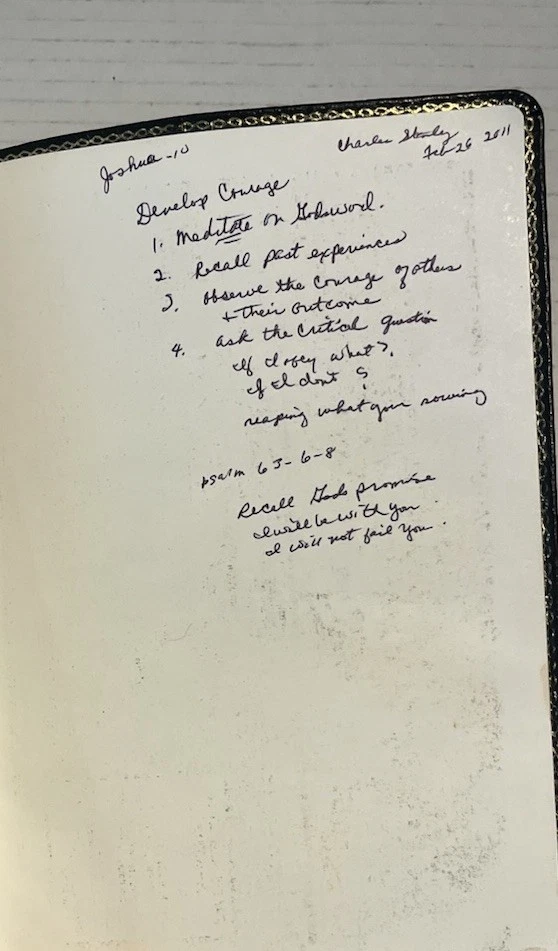 Joshua - 10
Charles Stanley
Feb 26 2011
Develop Courage
1. Meditate on Godsword.
2. Recall past experiences
3. observe the courage of others
+ their outcome
4. ask the critical question
If I obey what?
If I dont ?
reaping what your sowing
psalm 63-6-8
Recall Gods promise
I will be with you
I will not fail you.